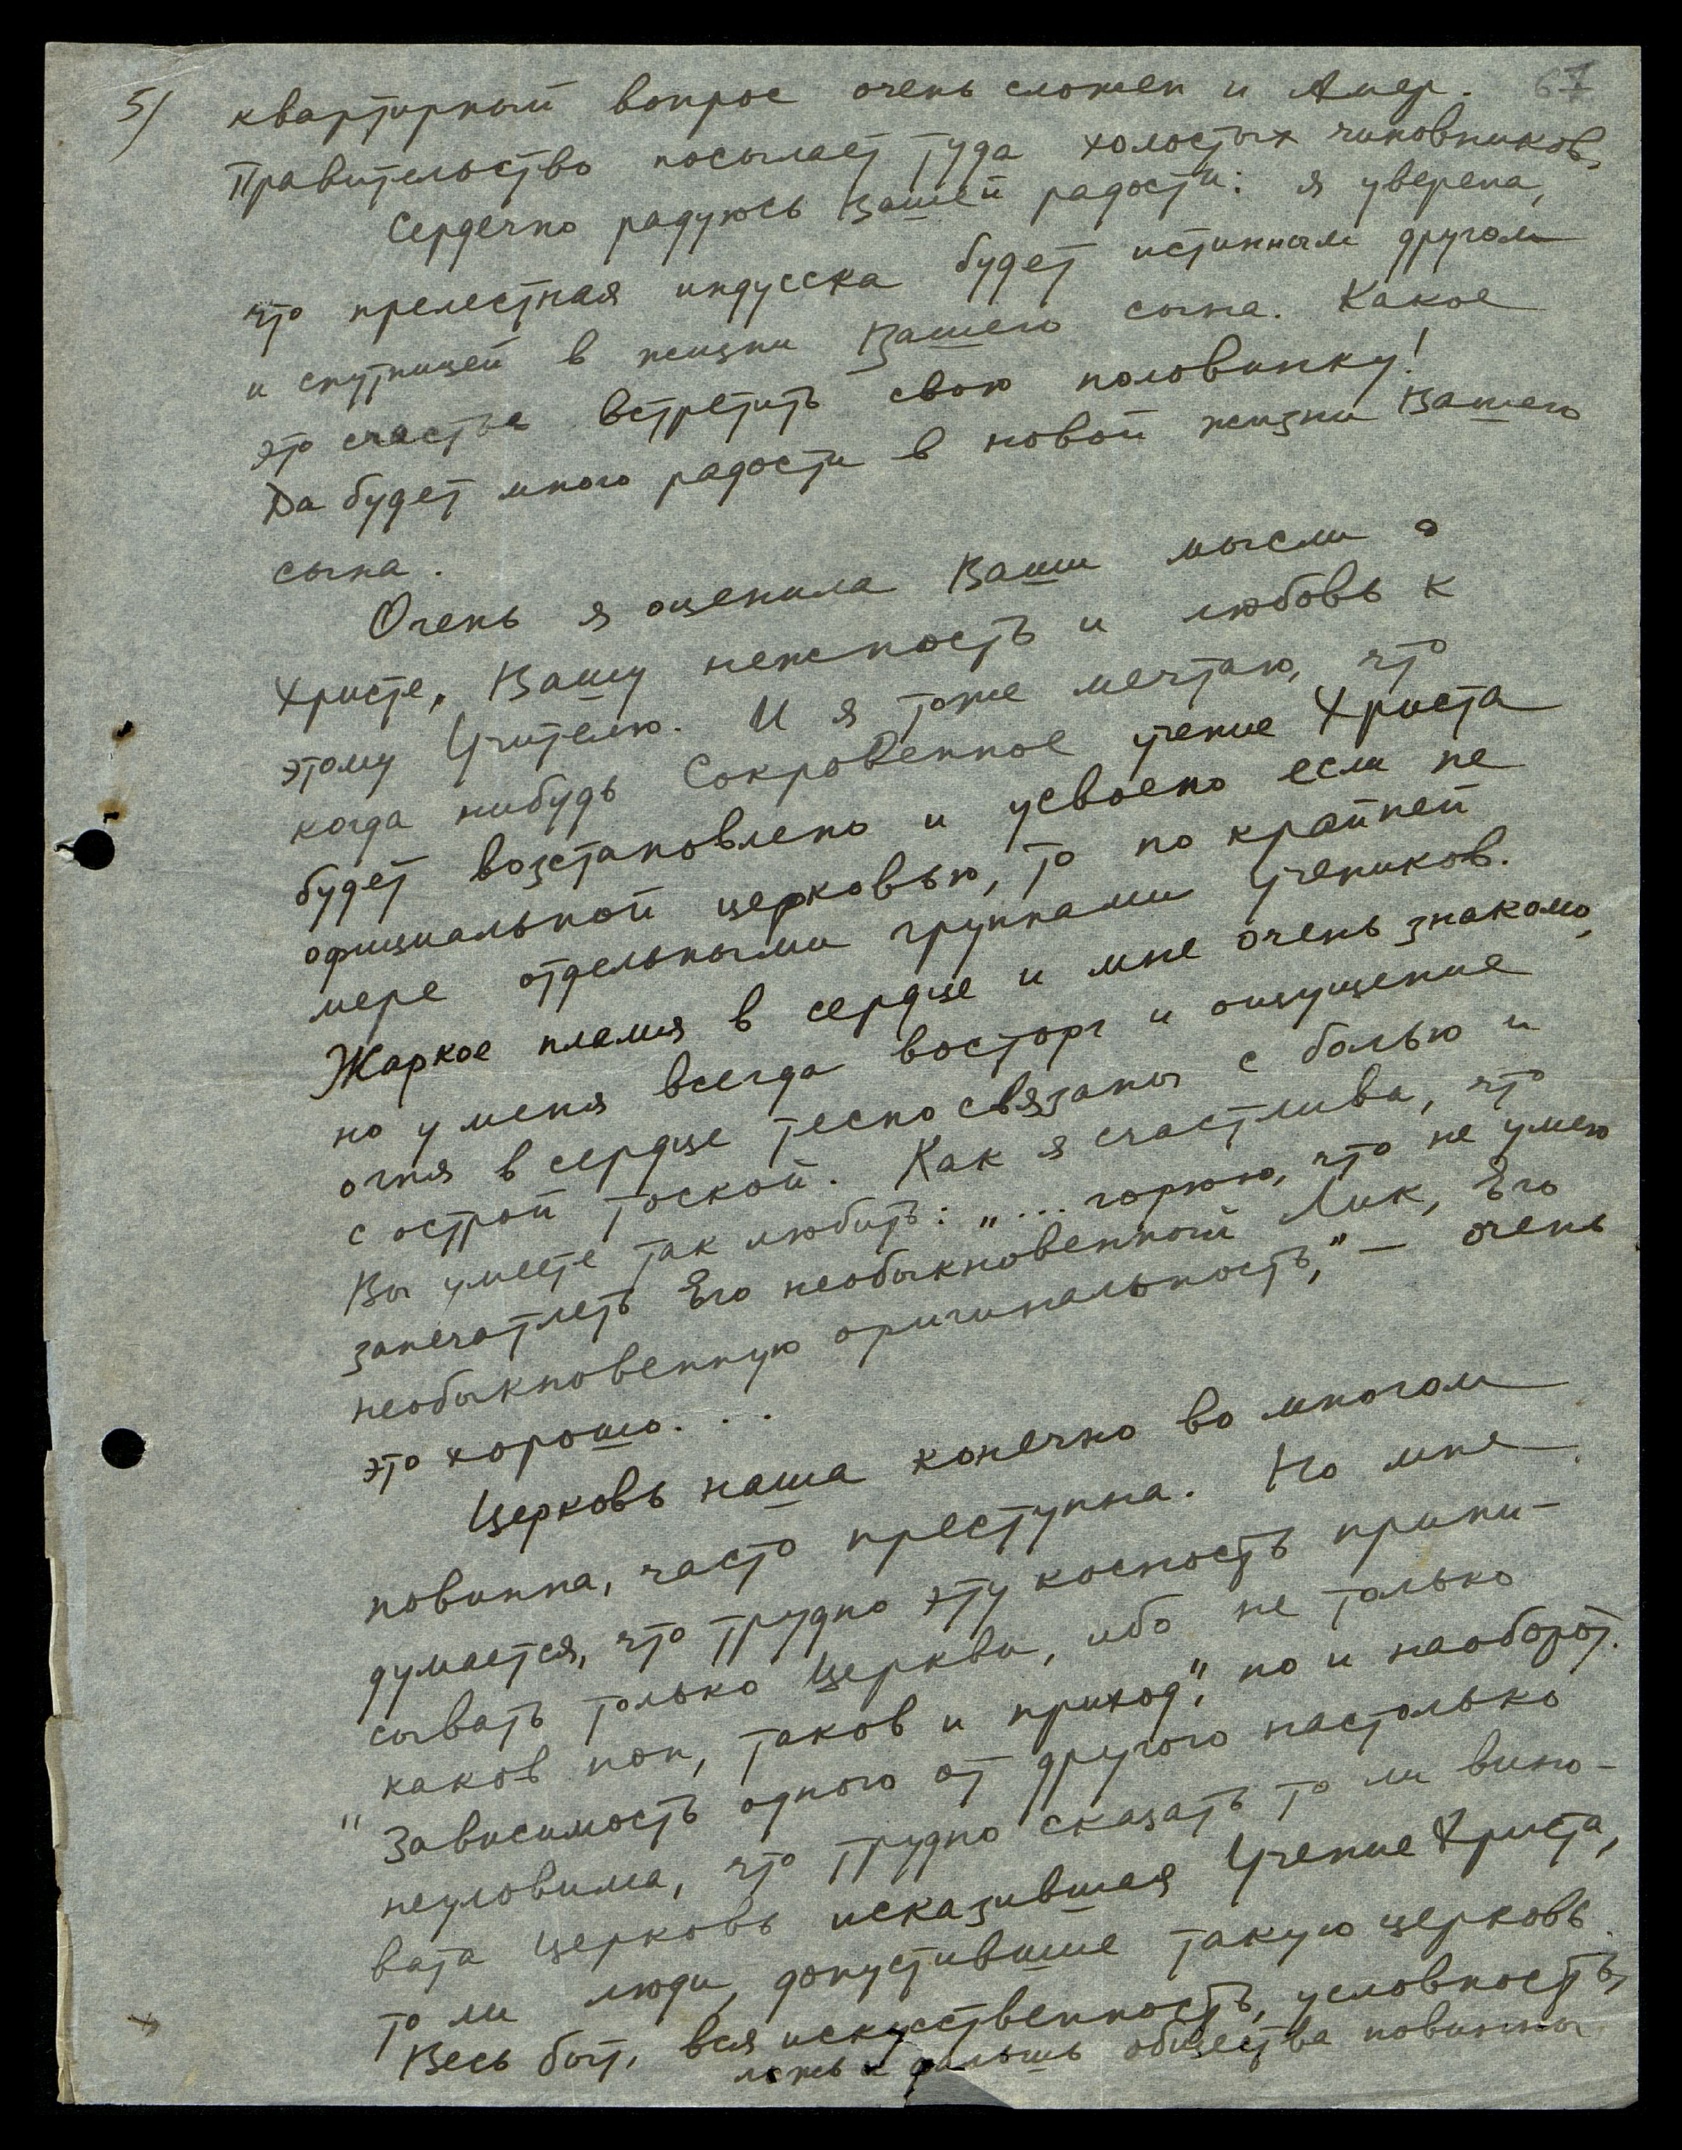 5) квартирный вопрос очень сложен и Амер. 67
Правительство посылает туда холостых чиновников.
Сердечно радуюсь Вашей радости: я уверена,
что прелестная индусска будет истинным другом
и спутницей в жизни Вашего сына. Какое
это счастье встретить свою половинку!
Да будет много радости в новой жизни Вашего
сына.
Очень я оценила Ваши мысли о
Христе, Вашу нежность и любовь к
этому Учителю. И я тоже мечтаю, что
когда нибудь Сокровенное учение Христа
будет возстановлено и усвоено если не
официальной церковью, то по крайней
мере отдельными группами учеников.
Жаркое пламя в сердце и мне очень знакомо,
но у меня всегда восторг и ощущение
огня в сердце тесно связаны с болью и
с острой тоской. Как я счастлива, что
Вы умеете так любить: „... горюю, что не умею
запечатлеть Его необыкновенный Лик, Его
необыкновенную оригинальность," — очень
это хорошо...
Церковь наша конечно во многом
повинна, часто преступна. Но мне
думается, что трудно эту косность припи-
сывать только Церкви, ибо не только
„каков поп, таков и приход", но и наоборот.
Зависимость одного от другого настолько
неуловима, что трудно сказать то ли вино-
вата Церковь исказившая Учение Христа,
то ли люди, допустившие такую церковь.
Весь быт, вся искусственность, условность,
ложь и фальшь общества повинны